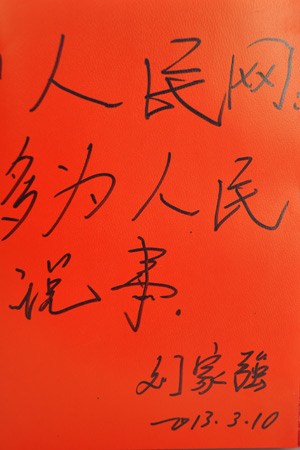 人民网:
多为人民
说事.
刘家强
2013.3.10